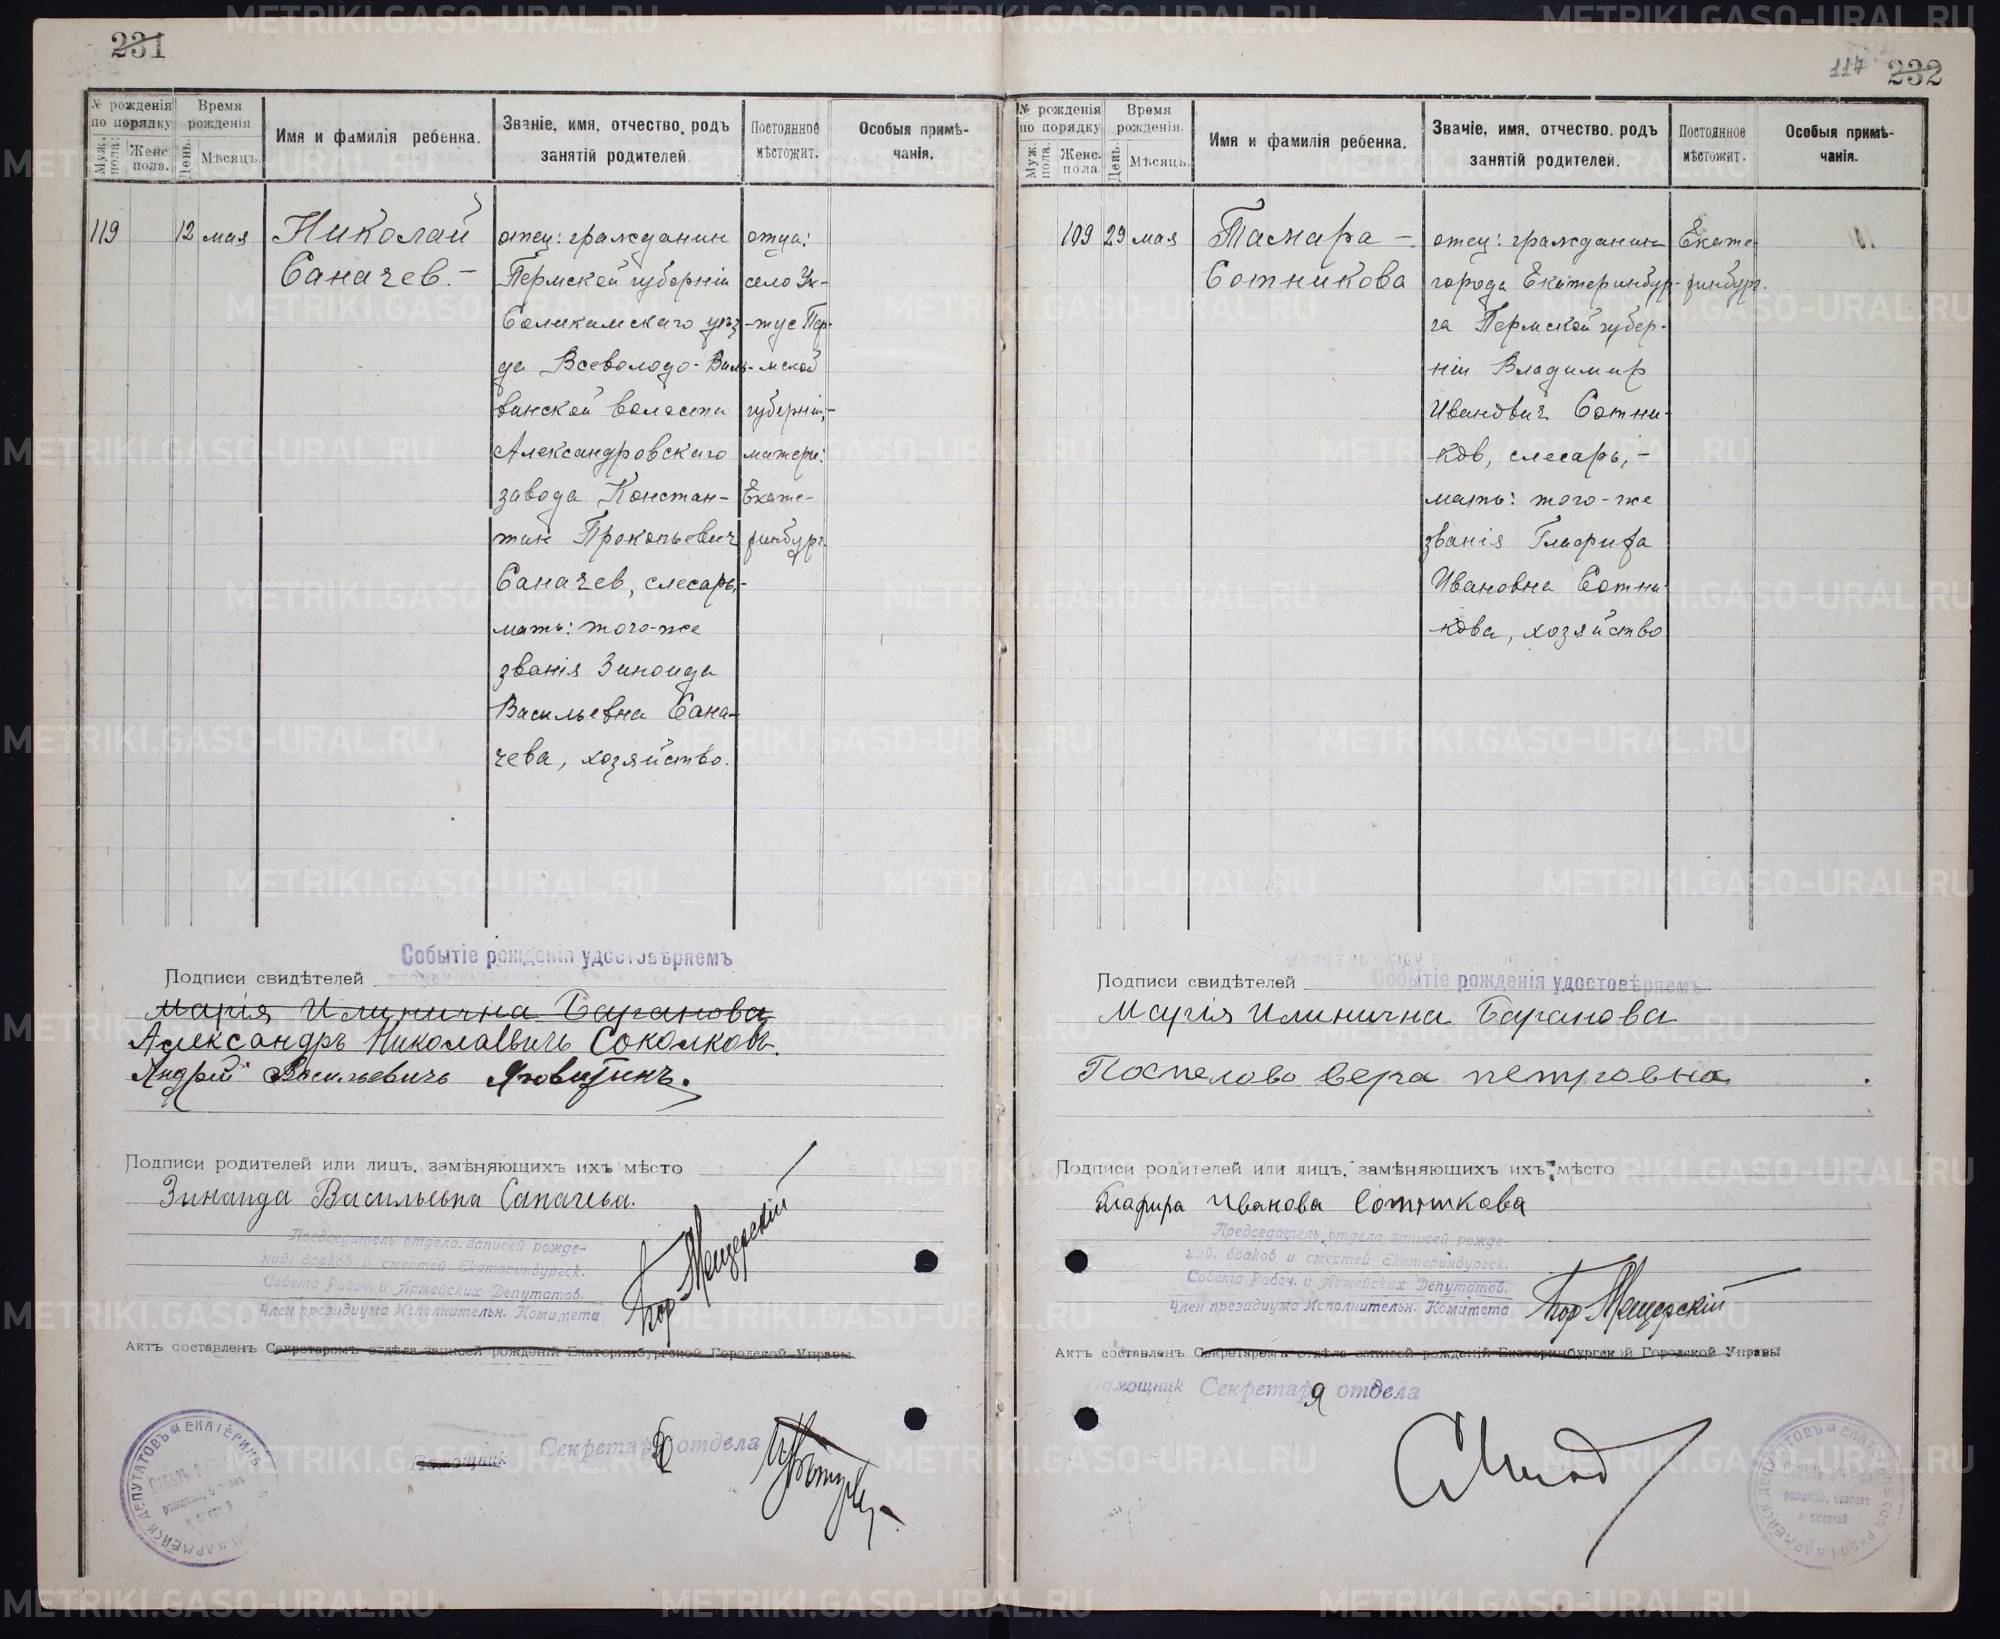 231
№ рожденія по порядку
Муж. пола.
Женс. пола.
Время рожденія
День.
Мѣсяцъ.
Имя и фамилія ребенка.
Званіе, имя, отчество, родъ занятій родителей.
Постоянное мѣстожит.
Особыя примѣчанія.
119 12 мая
Николай
Саначев. –
отец: гражданин
Пермской губерніи
Соликамскаго уѣз
да Всеволодо-Виль-
венской волости
Александровскаго
завода Констан-
тин Прокопьевич
Саначев, слесарь,-
мать: того-же
званія Зиноида
Васильевна Сана-
чева, хозяйство.
отца:
село
Пер-
мской
губерніи,-
матери:
Екате-
ринбург.
Событіе рожденія удостовѣряемъ
Подписи свидѣтелей
Марія Илинична Баранова
Александръ Николаевичъ Соколковъ.
Андрей Васильевичъ
Подписи родителей или лицъ, замѣняющихъ ихъ мѣсто
Зинаида Васильевна Саначева.
Председатель отдела записей рожде-
ний, браков и смертей Екатеринбургск.
Совета Рабоч. и Армейских Депутатов.
Член президиума Исполнительн. Комитета
Мещерскій
Актъ составленъ Секретаремъ отдѣла записей рожденій Екатеринбургской Городской Управы
Помощник Секретарь отдела
117 232
№ рожденія по порядку
Муж. пола.
Женс. пола
Время рожденія.
День.
Мѣсяцъ.
Имя и фамилія ребенка.
Званіе, имя, отчество, родъ занятій родителей.
Постоянное мѣстожит.
Особыя примѣчанія.
109 29 мая
Тамара –
Сотникова
отец: гражданин
города Екатеринбур-
га Пермской губер-
ніи Владимир
Иванович Сотни-
ков, слесарь, -
мать: того-же
званія Глафира
Ивановна Сотни-
кова, хозяйство
Екате
ринбург.
Событіе рожденія удостовѣряемъ
Подписи свидѣтелей
Марія Илинична Баранова
Поспелово вера петровна
Подписи родителей или лицъ, замѣняющихъ ихъ мѣсто
Глафира Иванова Сотникова
Председатель отдела записей рожде-
ний, браков и смертей Екатеринбургск.
Совета Рабоч. и Армейских Депутатов.
Член президиума Исполнительн. Комитета
Мещерскій
Актъ составленъ Секретаремъ отдѣла записей рожденій Екатеринбургской Городской Управы
Помощник Секретаря отдела
METRIKI.GASO-URAL.RU